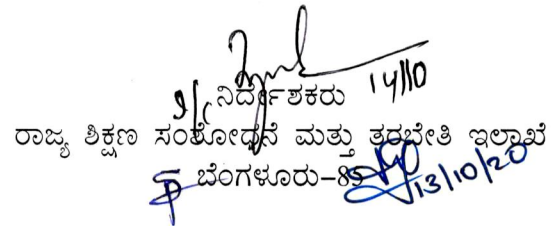 14/10
I/c ನಿರ್ದೇಶಕರು
ರಾಜ್ಯ ಶಿಕ್ಷಣ ಸಂಶೋಧನೆ ಮತ್ತು ತರಬೇತಿ ಇಲಾಖೆ
ಬೆಂಗಳೂರು-85
13/10/20